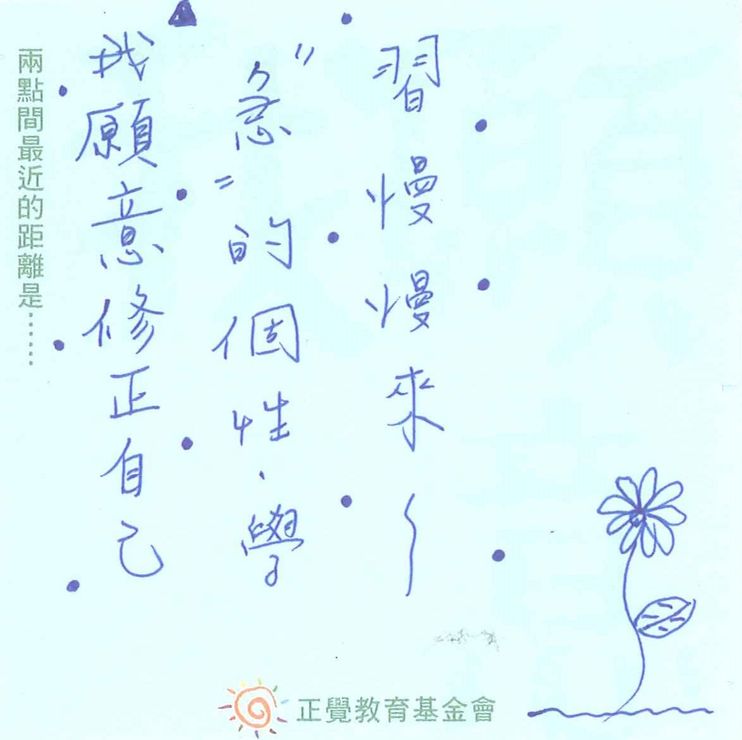 兩點間最近的距離是……
我願意修正自己
"急"的個性、學
習慢慢來～
正覺教育基金會